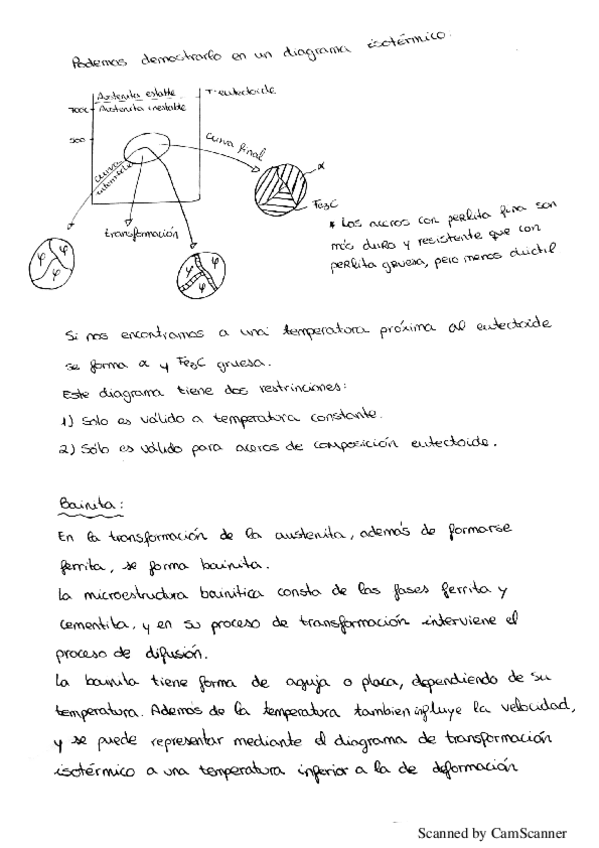 Podemos demostrarlo en un diagrama isotérmico.
Austenita estable
T-eutectoide
Austenita inestable
500
curva final
curva
α
Fe3C
transformación
φ φ φ
φ φ φ
* Los aceros con perlita fina son
más duro y resistente que con
perlita gruesa, pero menos dúctil
Si nos encontramos a una temperatura próxima al eutectoide
se forma α y Fe3C gruesa.
Este diagrama tiene dos restrinciones:
1) Solo es válido a temperatura constante.
2) Sólo es válido para aceros de composición eutectoide.
Bainita:
En la transformación de la austenita, además de formarse
ferrita, se forma bainita.
La microestructura bainitica consta de las fases ferrita y
cementita, y en su proceso de transformación interviene el
proceso de difusión.
La bainita tiene forma de aguja o placa, dependiendo de su
temperatura. Además de la temperatura tambien influye la velocidad,
y se puede representar mediante el diagrama de transformación
isotérmico a una temperatura inferior a la de deformación
Scanned by CamScanner